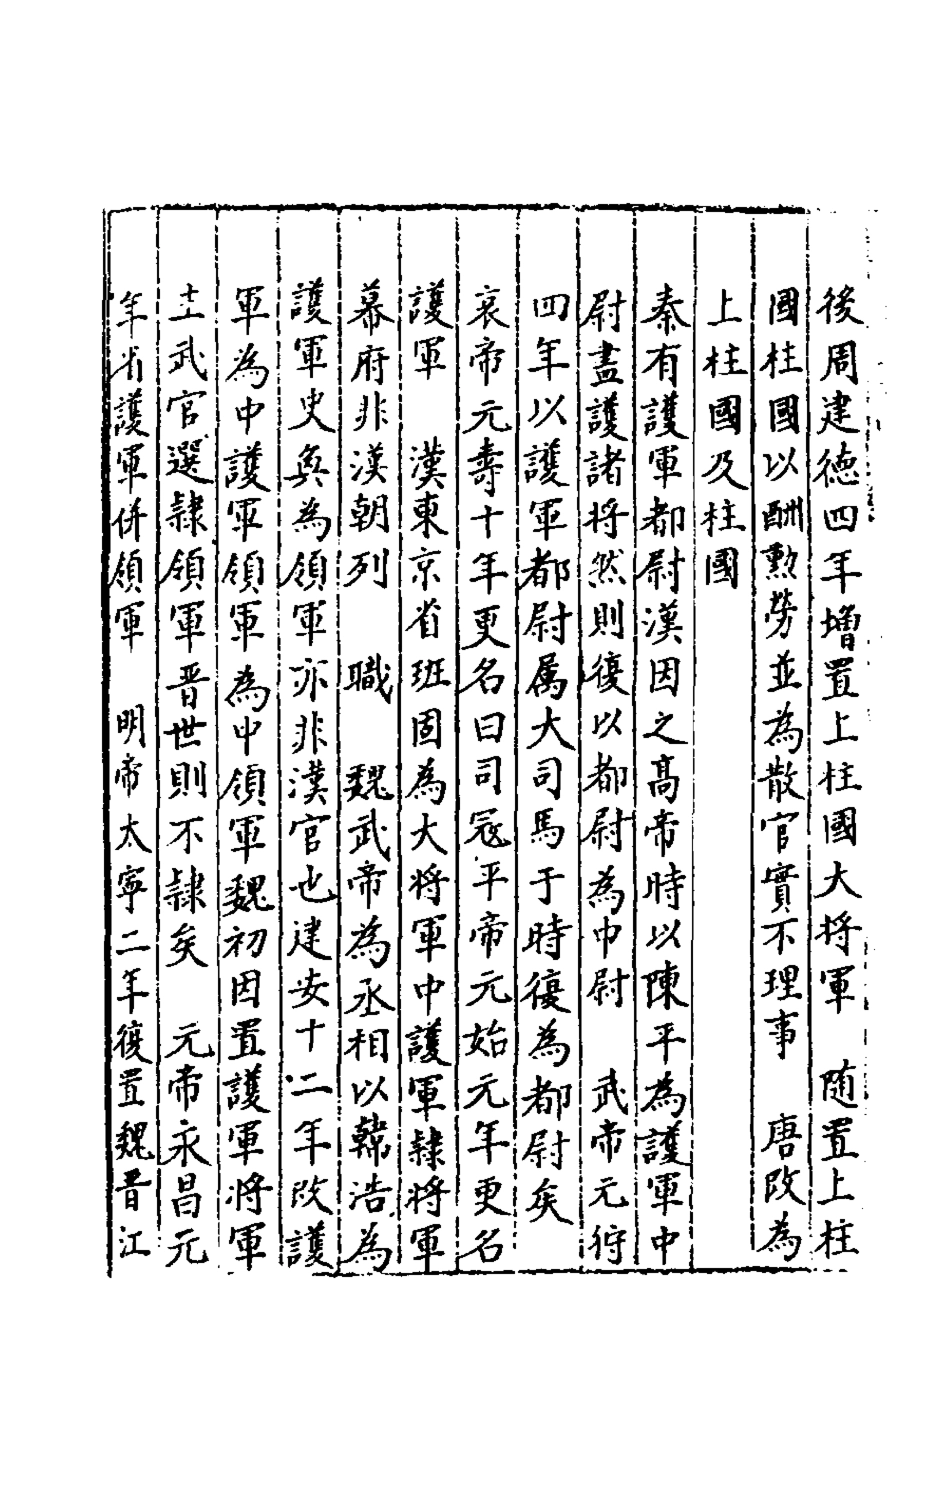 後周建德四年增置上柱國大将軍　随置上柱
國柱國以酬勲勞並為散官實不理事　唐改為
上柱國及柱國
秦有護軍都尉漢因之高帝時以陳平為護軍中
尉盡護諸将然則復以都尉為中尉　武帝元狩
四年以護軍都尉属大司馬于時復為都尉矣
哀帝元壽十年更名曰司冦平帝元始元年更名
護軍　漢東京省班固為大将軍中護軍隷将軍
幕府非漢朝列　職　魏武帝為丞相以韓浩為
護軍史奐為領軍亦非漢官也建安十二年改護
軍為中護軍領軍為中領軍魏初因置護軍将軍
主武官選隷領軍晋世則不隷矣　元帝永昌元
年省護軍併領軍　明帝太寧二年復置魏晋江